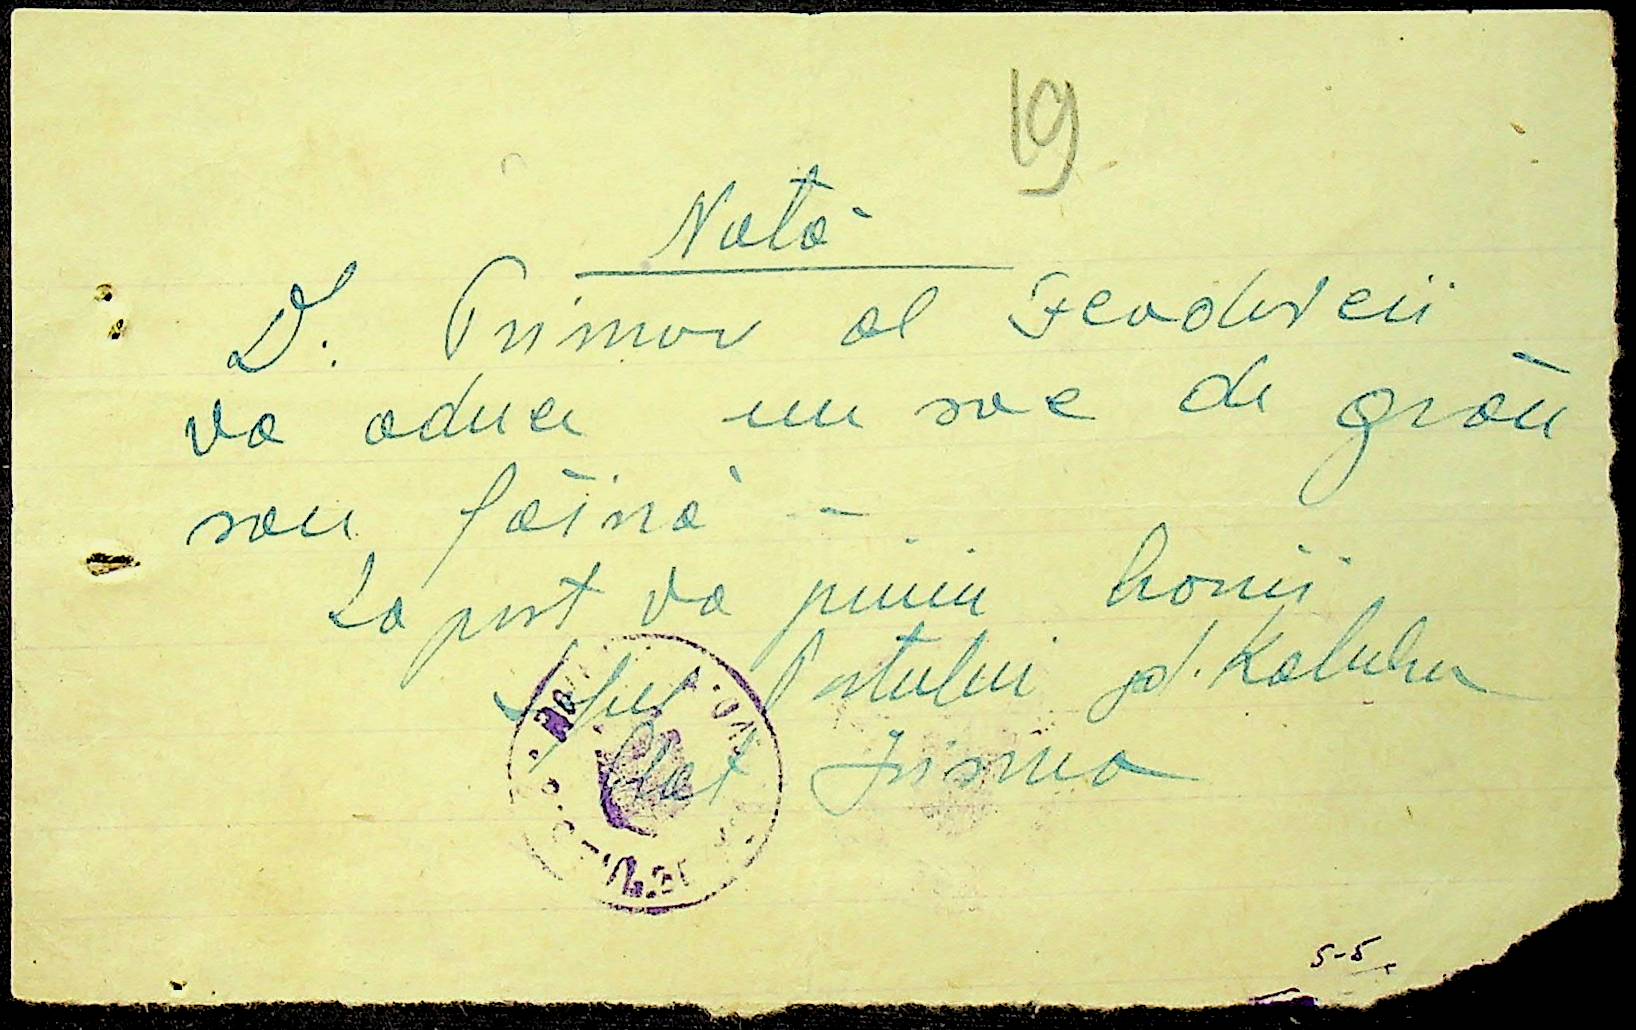 19
Notă
D. Primar al Feodoreii
va aduce un sac de grâu
sau făină -
La post va primi banii
Șeful Postului jd. Kaluhu
Plot Irimia
5-5